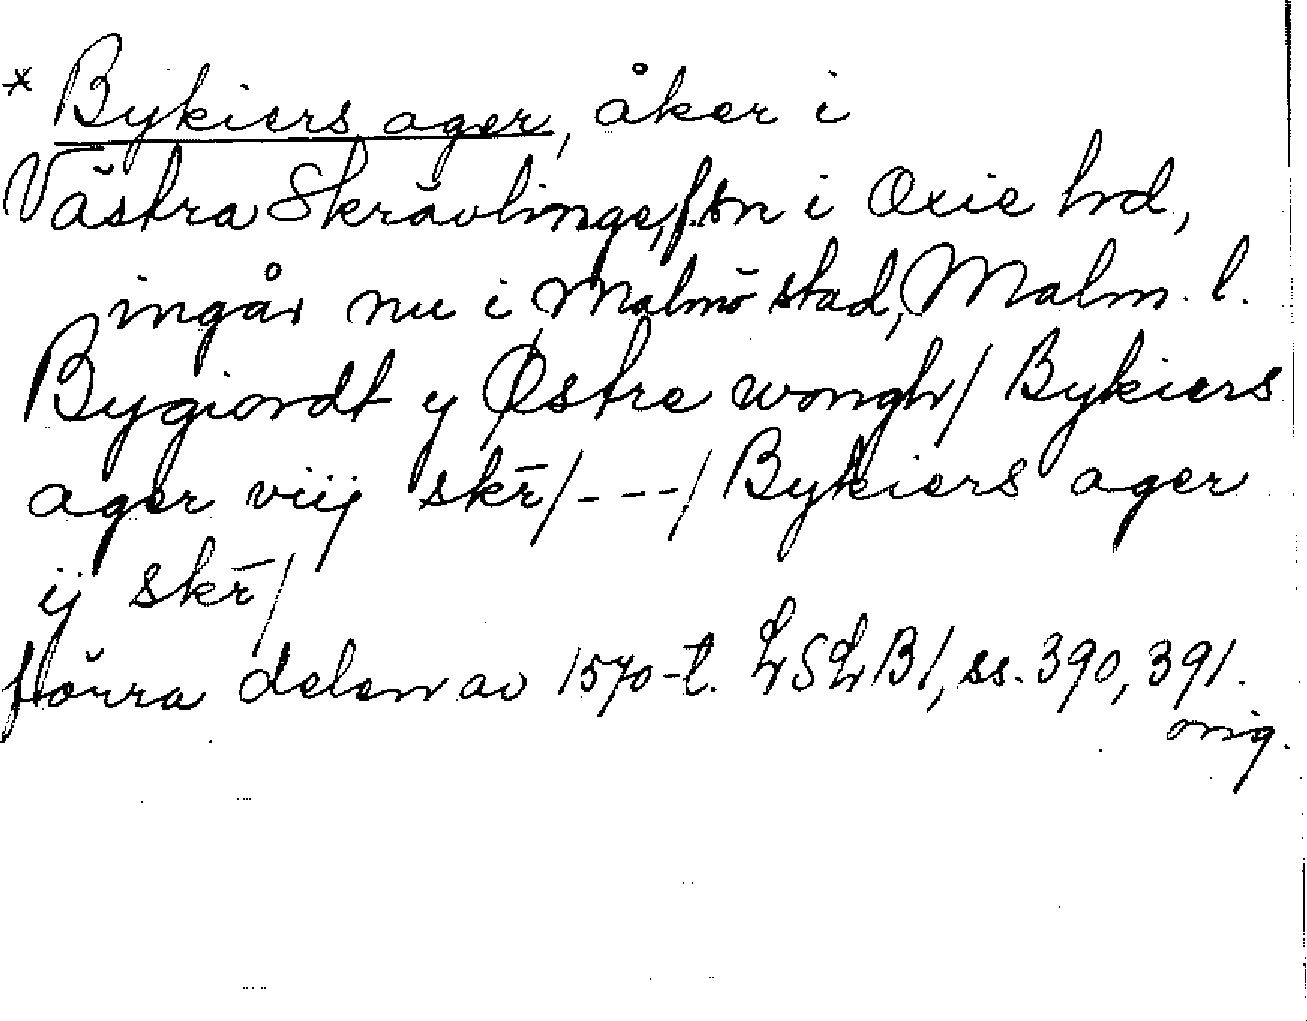 * Bykiers ager, åker i
Västra Skrävlinge, f.sn i Oxie hd,
ingår nu i Malmö stad, Malm. l.
Bygiordt y Østre wongh/ Bykiers
ager viij skr̄/---/ Bykiers ager
ij skr̄/
förra delen av 1570-t. LSLB1, ss. 390, 391.
orig.